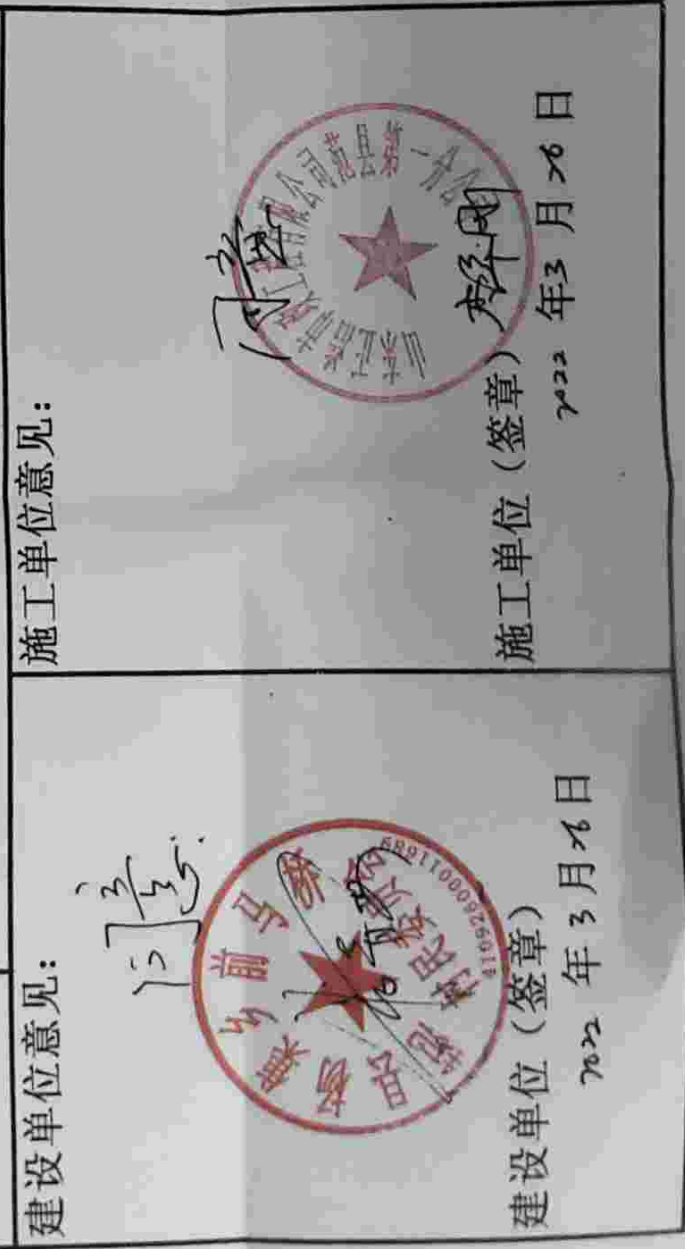 建设单位意见：
同意.
范县杨集乡前马
村民委员会
4109260001689
建设单位（签章）
2022 年 3 月 26 日
施工单位意见：
同意
工程有限公司范县第一分公
施工单位（签章）
2022 年 3 月 26 日